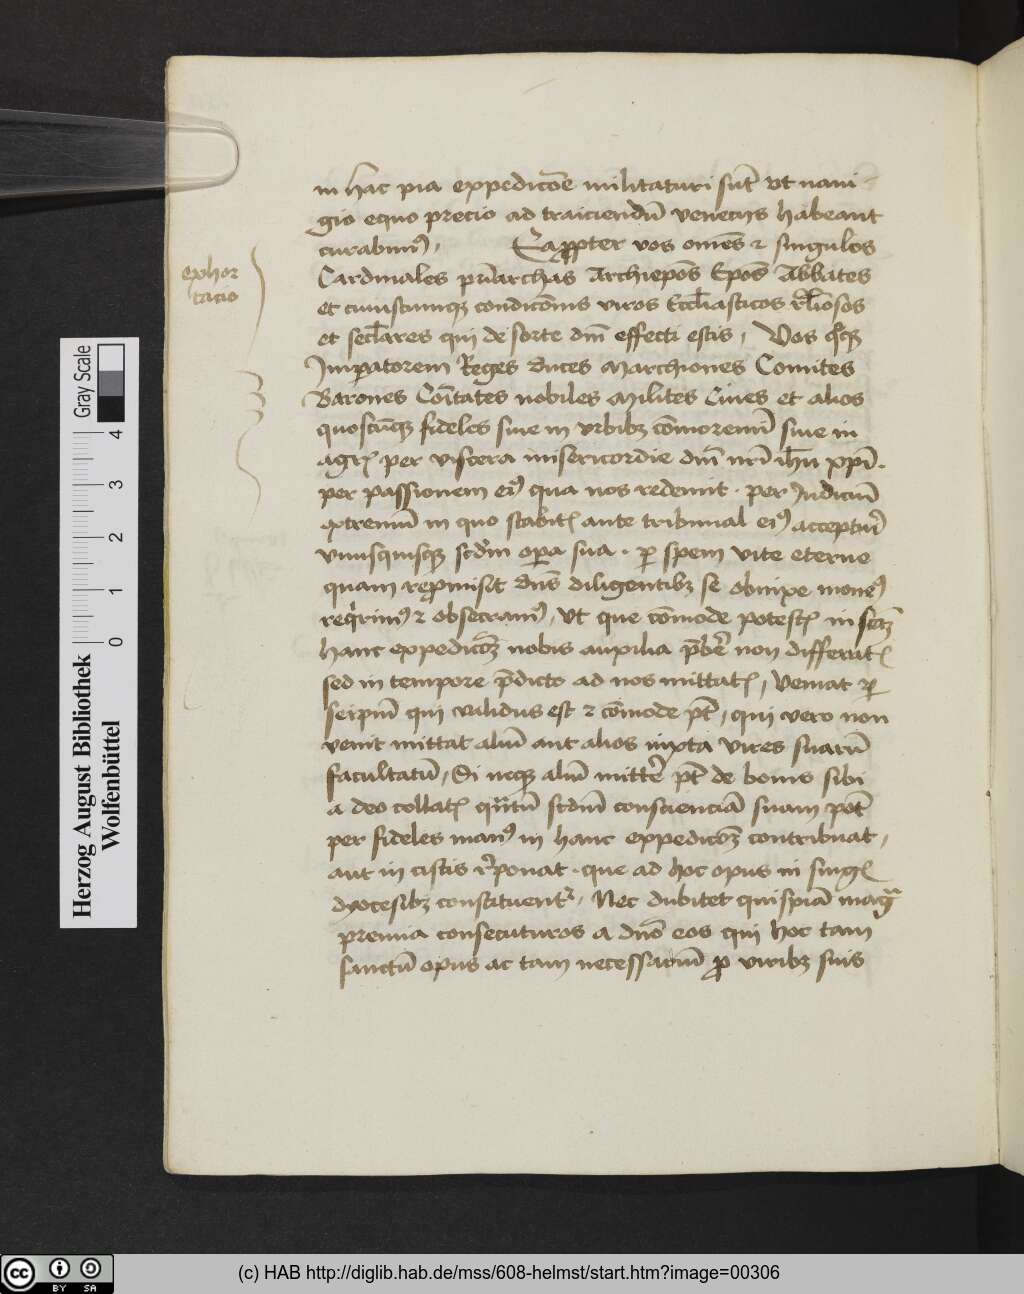 in hac pia expedicõe militaturi sũt vt navi-
gio equo precio ad traiciendũ venecijs habeant
curabimꝰ, Eappter vos omẽs ⁊ singulos
exhor
tacio
Cardinales pr̃iarchas Archiepõs Epõs Abbates
et cuiuscumqꝫ condicõnis viros Eccl̃iasticos rl̃iosos
et secl̃ares qui de sorte dñi effecti estis, Vos qͦqꝫ
Imperatorem Reges duces Marchiones Comites
Barones Cõitates nobiles Milites Ciues et alios
quoscũqꝫ fideles siue in vrbibꝫ cõmoremĩ siue in
agrꝭ per viscera misericordie dñi nr̃i ih̃u xp̃i.
per passionem eiꝰ qua nos redemit. per Iudiciũ
extremũ in quo stabitꝭ ante tribunal eiꝰ acceptur̃
vnusquisqꝫ scd̃m oꝑa sua. ꝑ spem vite eterne
quam repromisit dñs diligentibꝫ se obnixe monemꝰ
reqͥrimꝰ ⁊ obsecramꝰ, vt que cõmode potestꝭ in sctãm
hanc expedicõꝫ nobis auxilia p̃bẽr non differatꝭ
sed in tempore p̃dicto ad nos mittatꝭ, Veniat ꝑ
seipm̃ qui validus est ⁊ cõmode pt̃, qui vero non
venit mittat aliũ aut alios iuxta vires suarũ
facultatũ, Si neqꝫ aliũ mitter̃ pt̃ de bonis sibi
a deo collatꝭ qñtũ scdm̃ conscienciã suam pot̃
per fideles manꝰ in hanc expedicõꝫ contribuat,
aut in cistis r̃ponat. que ad hoc opus in singꝭ
dyocesibꝫ constituentͬ, Nec dubitet quispiã mag̃
premia consecuturos a dño eos qui hoc tam
sanctũ opus ac tam necessariũ ꝓ viribꝫ suis
Herzog August Bibliothek
Wolfenbüttel
0 1 2 3 4
Gray Scale
cc BY SA
(c) HAB http://diglib.hab.de/mss/608-helmst/start.htm?image=00306